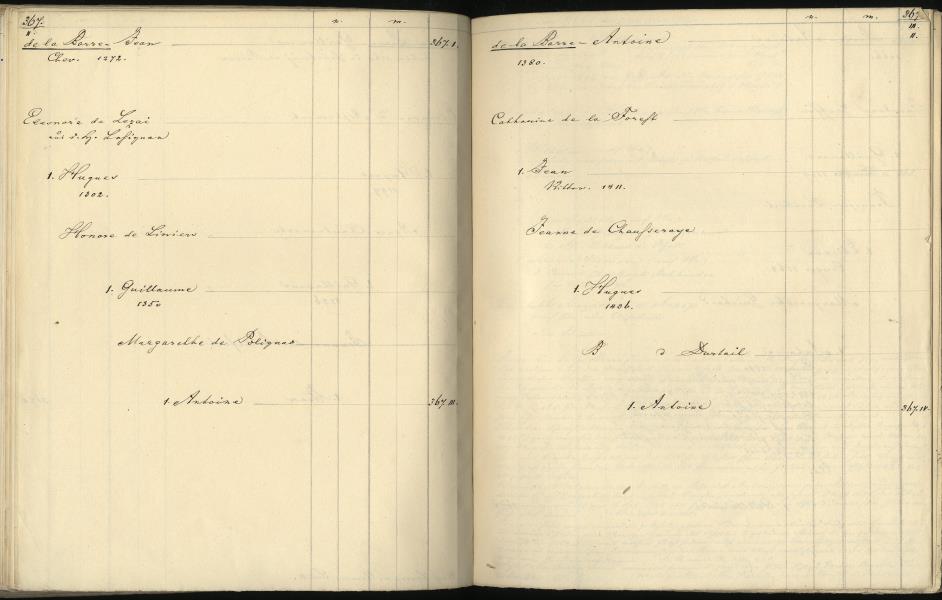 367.
II.
n. m.
de la Barre- Jean 367.I.
Chev. 1272.
Eleonore de Lezai
aus d. H. Lusignan
1. Hugues
1302.
Honore de Liniers
1. Guillaume
1350
Margarethe de Polignac
1. Antoine 367.III.
n. m. 367
III.
II.
de la Barre- Antoine
1380.
Catharine de la Forest
1. Jean
Ritter. 1411.
Jeanne de Chausseraye
1. Hugues
1406.
B d Dustail
1. Antoine 367.IV.